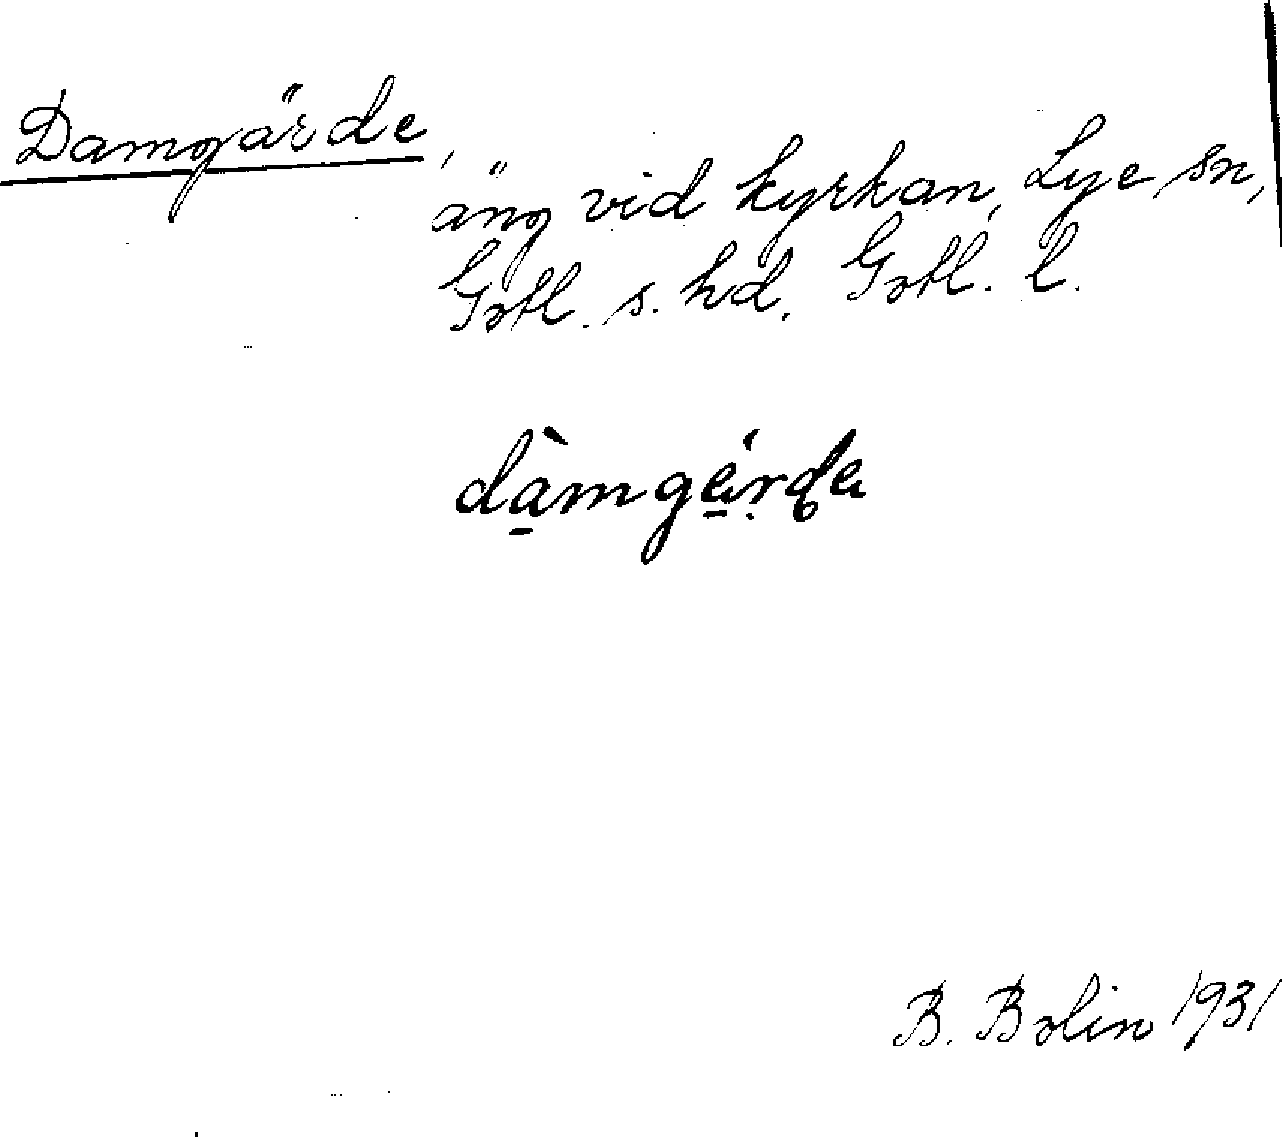 Damgärde,
äng vid kyrkan, Lye sn,
Gotl. s. hd. Gotl. l.
dàmgärda
B. Bolin 1931